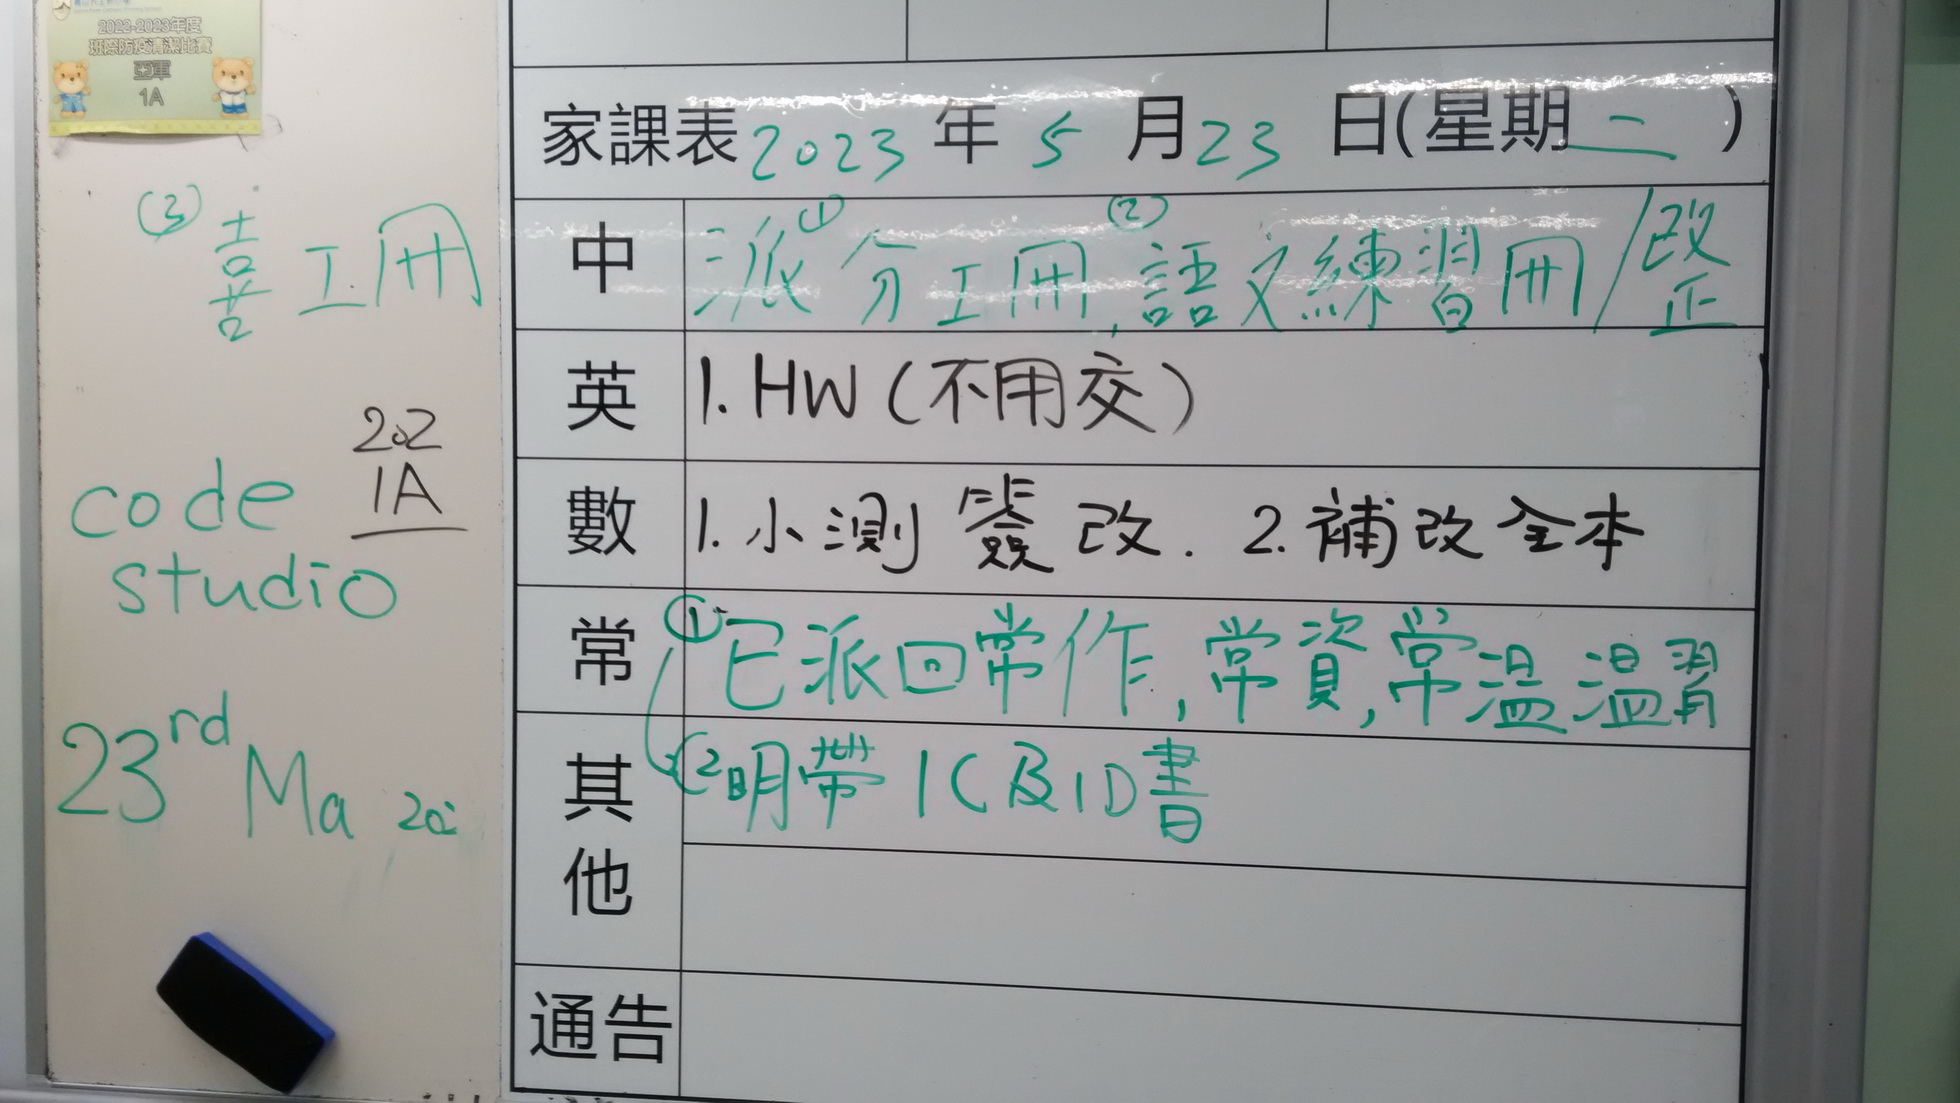 2022-2023年度
班際防疫清潔比賽
亞軍
1A
(3) 喜工冊
202
1A
code
studio
23rd Ma 202
家課表 2023 年 5 月 23 日(星期 二 )
中 派①分工冊, ②語文練習冊/改正
英 1. HW (不用交)
數 1. 小測簽改. 2. 補改全本
常 ①已派回常作, 常資, 常溫溫習
其他 ②明帶 IC及ID書
通告